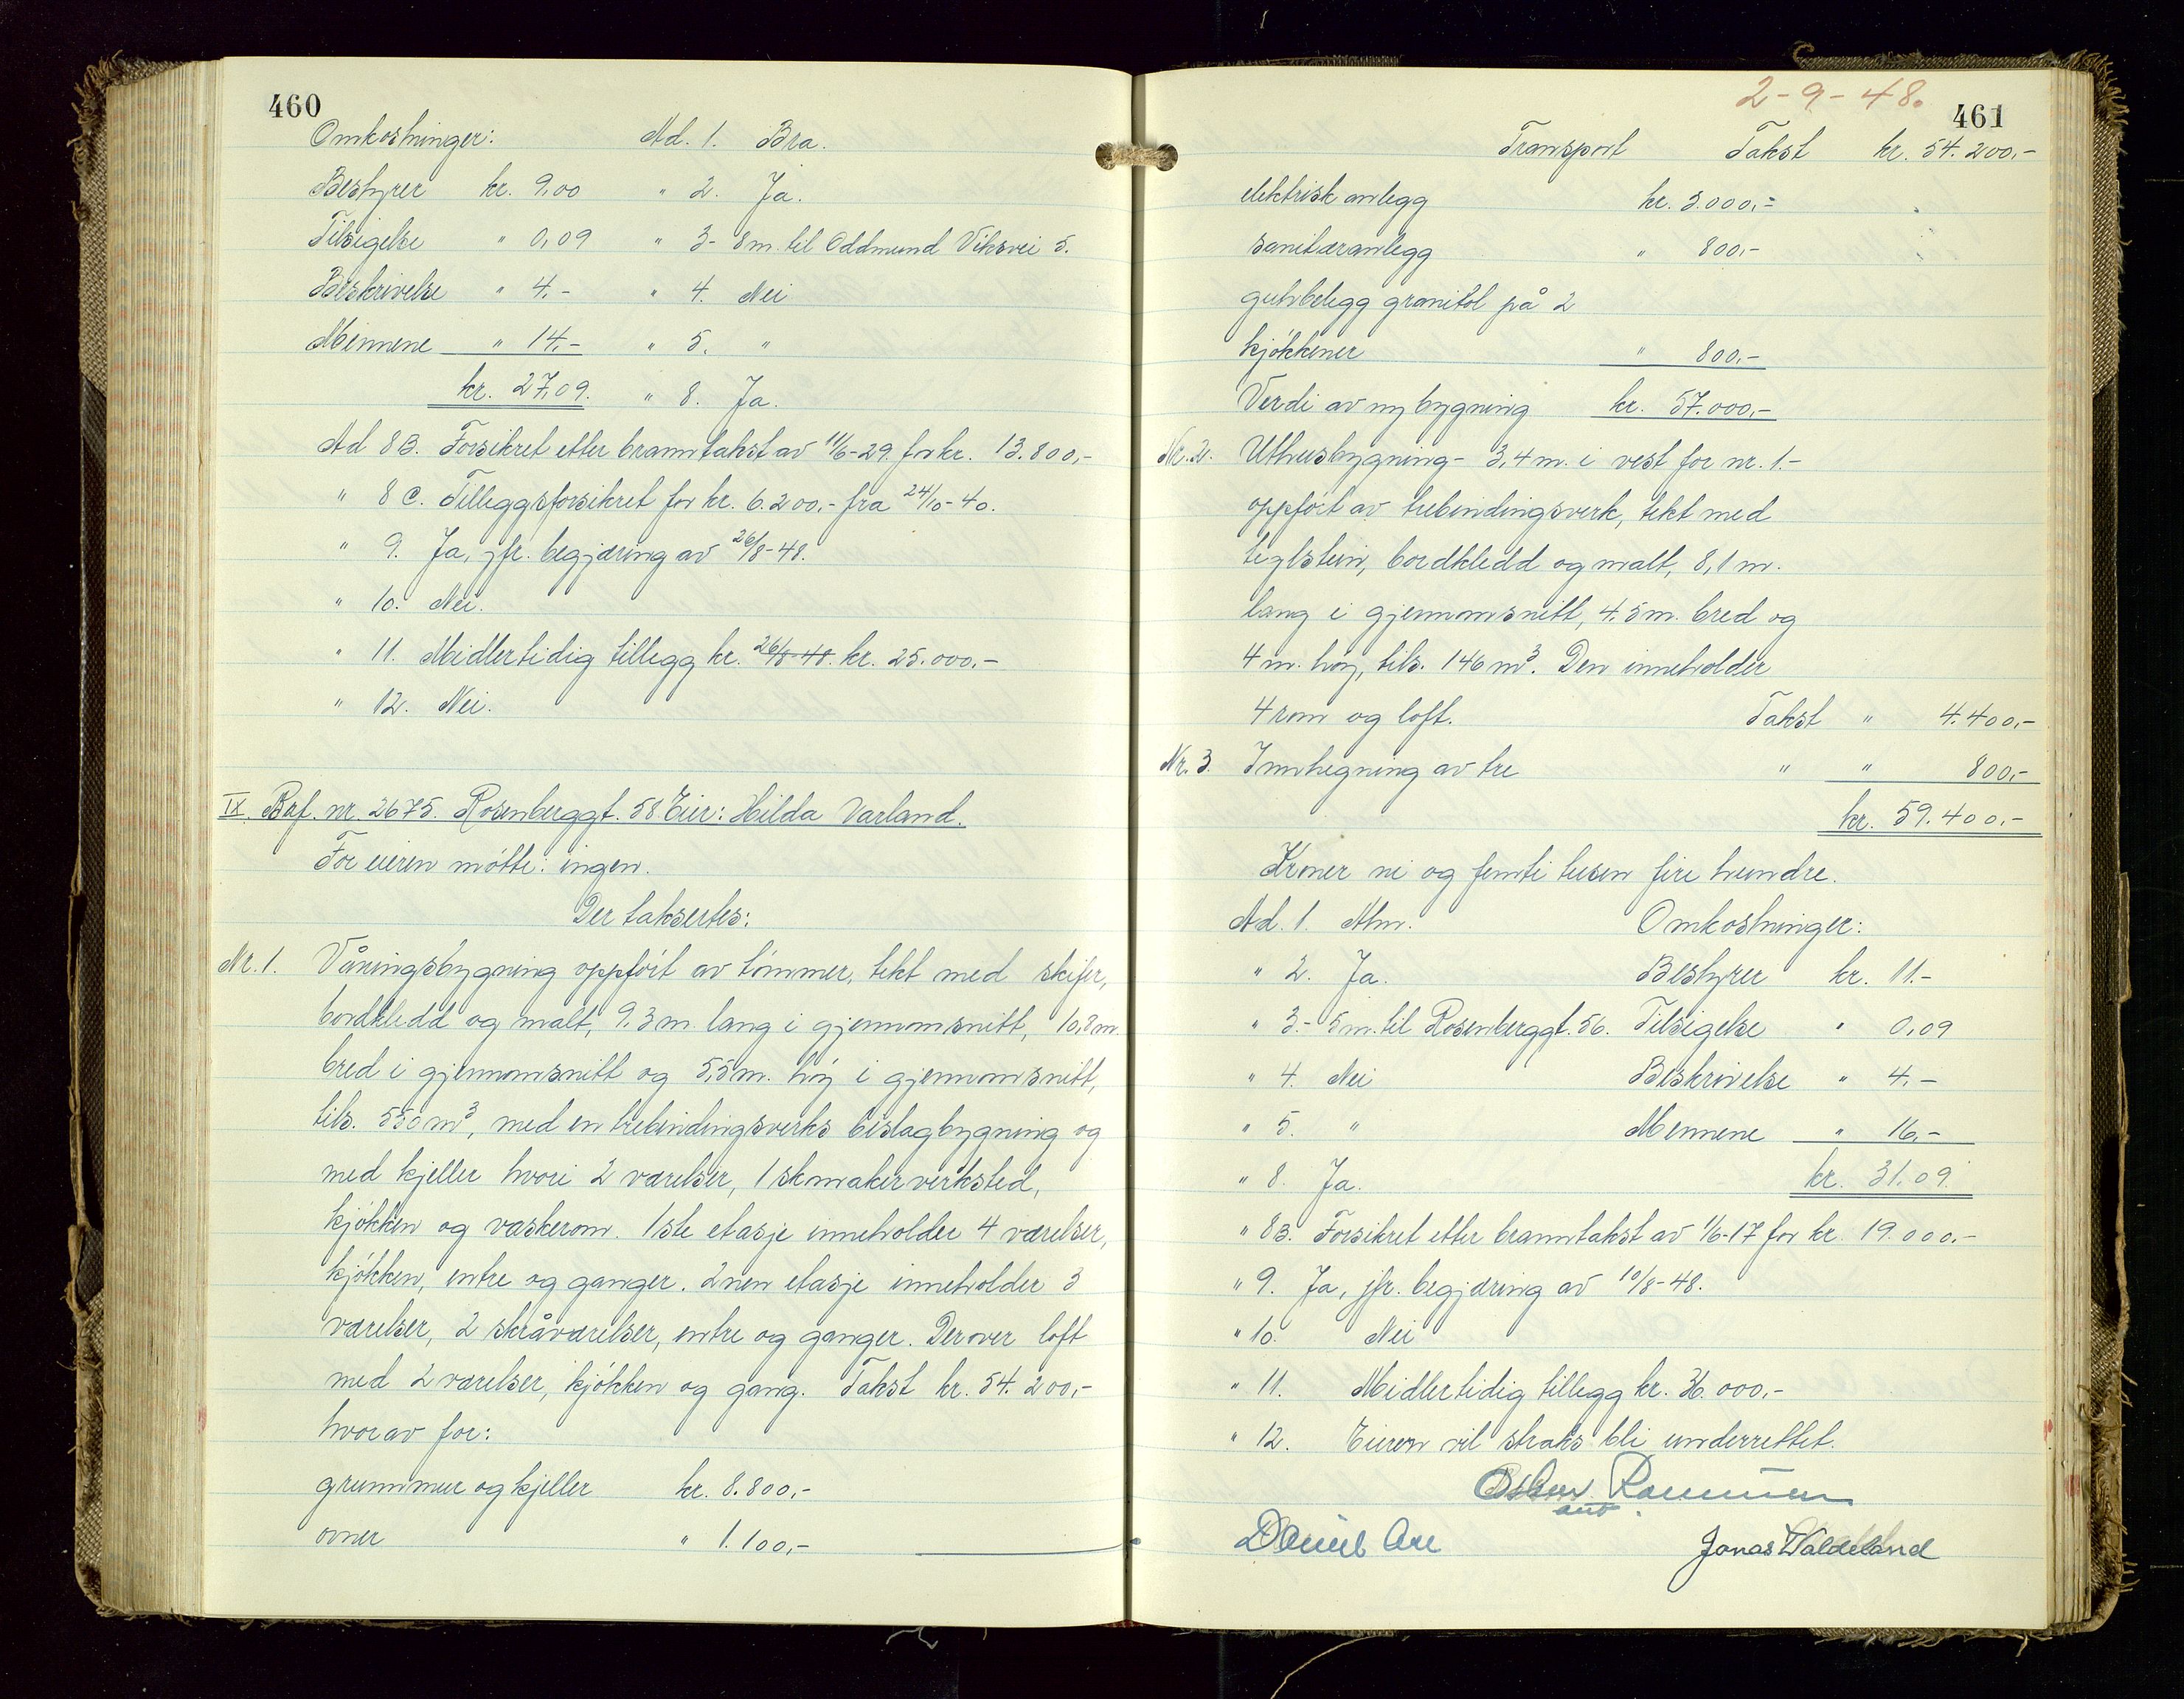 460
Omkostninger: Ad. 1. Bra.
Bestyrer kr. 9,00 " 2. Ja.
Tilsigelse " 0,09 " 3- 8m. til Oddmund Viksvei 5.
Beskrivelse " 4.- " 4. Nei
Mennene " 14.- " 5. "
kr. 27,09. " 8. Ja.
Ad 8B. Forsikret etter branntakst av 11/6-29. for kr. 13.800,-
" 8 C. Tilleggsforsikret for kr. 6.200.- fra 24/10-40.
" 9. Ja, jfr. begjæring av 26/8-48.
" 10. Nei.
" 11. Midlertidig tillegg kr. 26/8-48. kr. 25.000.-
" 12. Nei.
IX. Brf. nr. 2675. Rosenberggt. 58 Eier: Hilda Varland.
For eieren møtte: ingen.
Der taksertes:
Nr. 1. Våningsbygning oppført av tømmer, tekt med skifer,
bordkledd og malt, 9,3 m. lang i gjennomsnitt, 10,8 m.
bred i gjennomsnitt og 5,5 m. høy i gjennomsnitt,
tils. 550 m³, med en trebindingsverks bislagbygning og
med kjeller hvori 2 værelser, 1 skomakerverksted,
kjøkken og vaskerom. 1ste etasje inneholder 4 værelser,
kjøkken, entre og ganger. 2nen etasje inneholder 3
værelser, 2 skråværelser, entre og ganger. Derover loft
med 2 værelser, kjøkken og gang. Takst kr. 54.200,-
hvorav for:
grunnmur og kjeller kr. 8.800,-
ovner " 1.100,-
2-9-48.
461
Transport Takst kr. 54.200,-
elektrisk anlegg kr. 3.000,-
sanitæranlegg " 800,-
gulvbelegg granitol på 2
kjøkkener " 800,-
Verdi av nybygning kr. 57.000,-
Nr. 2. Uthusbygning- 3,4 m. i vest for nr. 1.-
oppført av trebindingsverk, tekt med
teglstein, bordkledd og malt, 8,1 m.
lang i gjennomsnitt, 4,5 m. bred og
4 m. høy, tils. 146 m³. Den inneholder
4 rom og loft. Takst " 4.400,-
Nr. 3. Innhegning av tre " " 800,-
kr. 59.400,-
Kroner ni og femti tusen fire hundre.
Ad. 1. Alm. Omkostninger:
" 2. Ja. Bestyrer kr. 11.-
" 3.- 5 m. til Rosenberggt. 56. Tilsigelse " 0,09
" 4. Nei Beskrivelse " 4.-
" 5. " Mennene " 16,-
" 8. Ja. kr. 31.09.
" 8B. Forsikret etter branntakst av 1/6-17 for kr. 19.000.-
" 9. Ja, jfr. begjæring av 10/8-48.
" 10. Nei
" 11. Midlertidig tillegg kr. 36.000,-
" 12. Eieren vil straks bli underrettet.
Jonas Waldeland